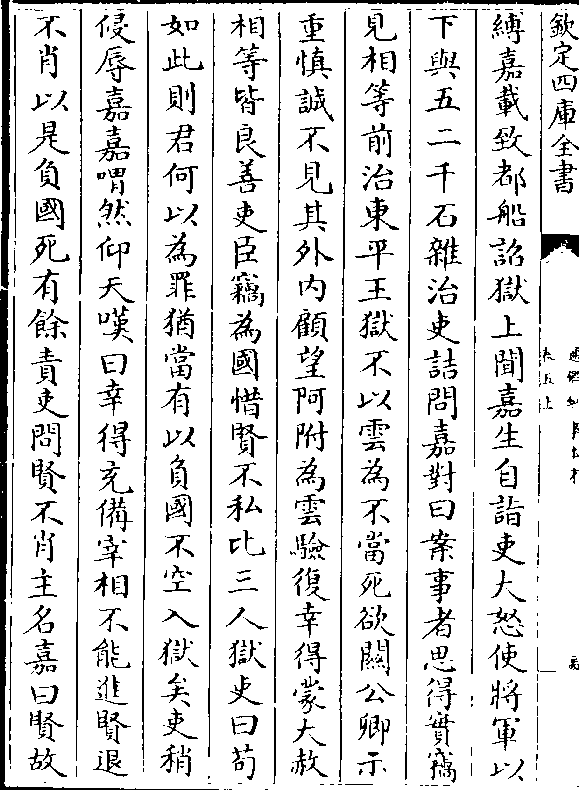 欽定四庫全書
縛嘉載致都船詔獄上聞嘉生自詣吏大怒使將軍以
下與五二千石雜治吏詰問嘉對曰案事者思得實竊
見相等前治東平王獄不以雲為不當死欲關公卿示
重慎誠不見其外内顧望阿附為雲驗復幸得蒙大赦
相等皆良善吏臣竊為國惜賢不私此三人獄吏曰苟
如此則君何以為罪猶當有以負國不空入獄矣吏稍
侵辱嘉嘉喟然仰天嘆曰幸得充備宰相不能進賢退
不肖以是負國死有餘責吏問賢不肖主名嘉曰賢故